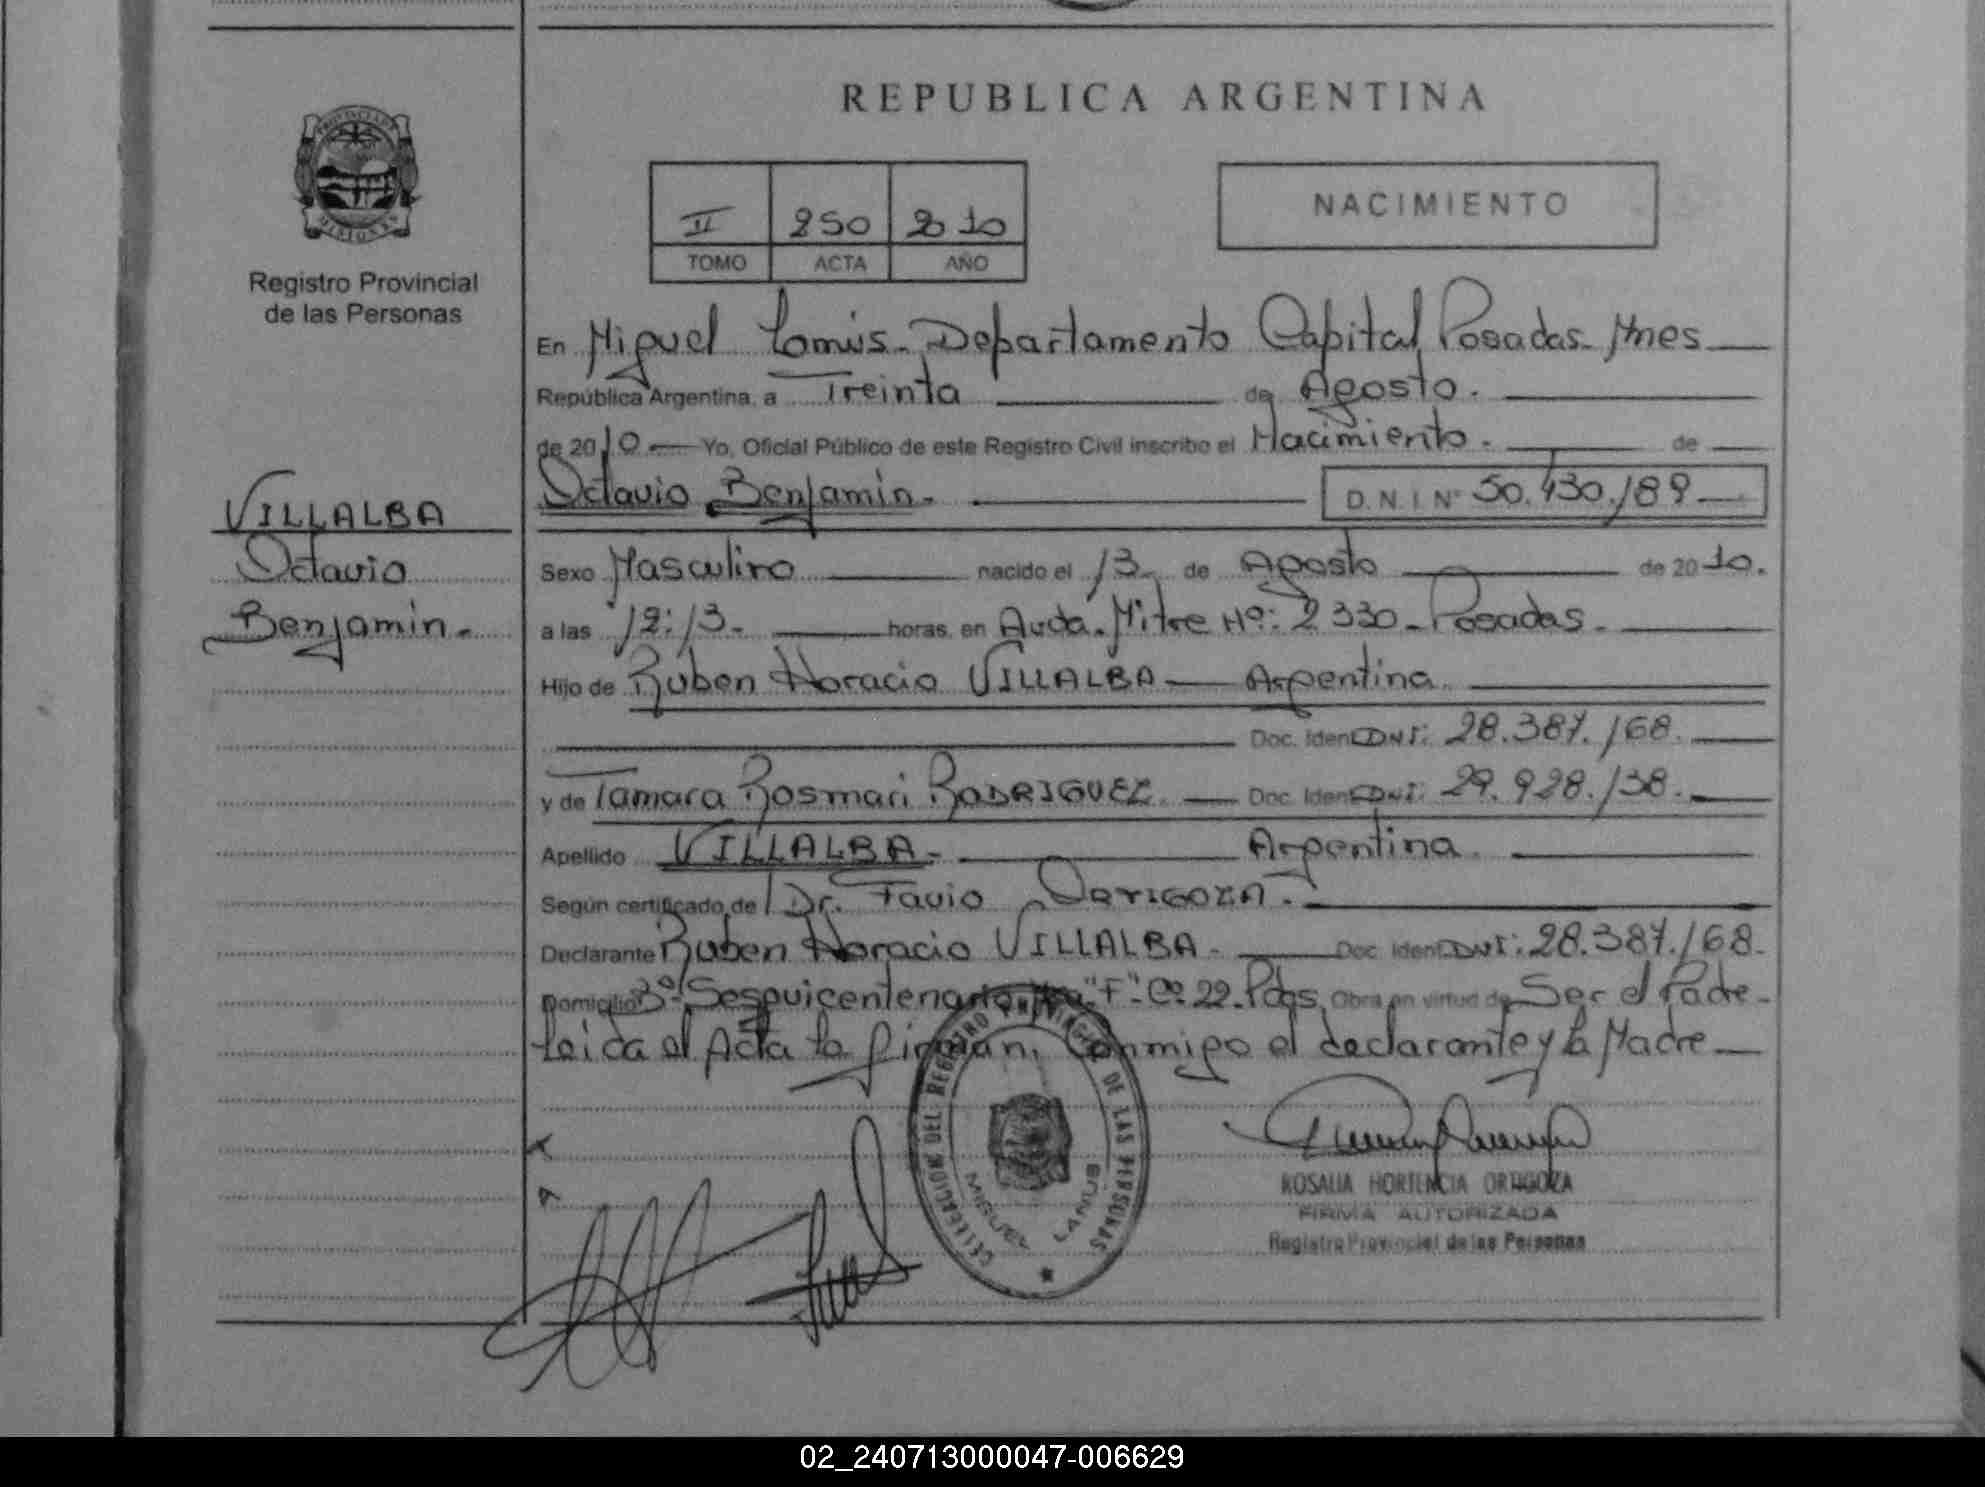 REPUBLICA ARGENTINA
PROVINCIA DE
MISIONES
Registro Provincial
de las Personas
NACIMIENTO
II 250 2010
TOMO ACTA AÑO
En Miguel Lanús - Departamento Capital Posadas - Mnes
República Argentina, a Treinta de Agosto.
de 2010 Yo, Oficial Público de este Registro Civil inscribo el Nacimiento. de
Octavio Benjamin. D.N.I Nº 50.430.189
VILLALBA
Octavio
Benjamin.
Sexo Masculino nacido el 13 de Agosto de 2010.
a las 12:13. horas, en Avda. Mitre Nº: 2330 - Posadas.
Hijo de Ruben Horacio VILLALBA Argentina
Doc. Ident DNI: 28.387.168.
y de Tamara Rosmari RODRIGUEZ. Doc. Ident DNI: 29.928.138.
Apellido VILLALBA. Argentina
Según certificado de Dr. Favio ORTIGOZA.
Declarante Ruben Horacio VILLALBA. Doc. Ident DNI: 28.387.168.
Domicilio Bº Sesquicentenario "F" Cº 22 - Pdas. Obra en virtud de Ser el Padre -
Leida el Acta la firman, Conmigo el declarante y la Madre
DELEGACION DEL REGISTRO PROVINCIAL DE LAS PERSONAS
MIGUEL LANUS
ROSALIA HORTENCIA ORTIGOZA
FIRMA AUTORIZADA
Registro Provincial de las Personas
02_240713000047-006629